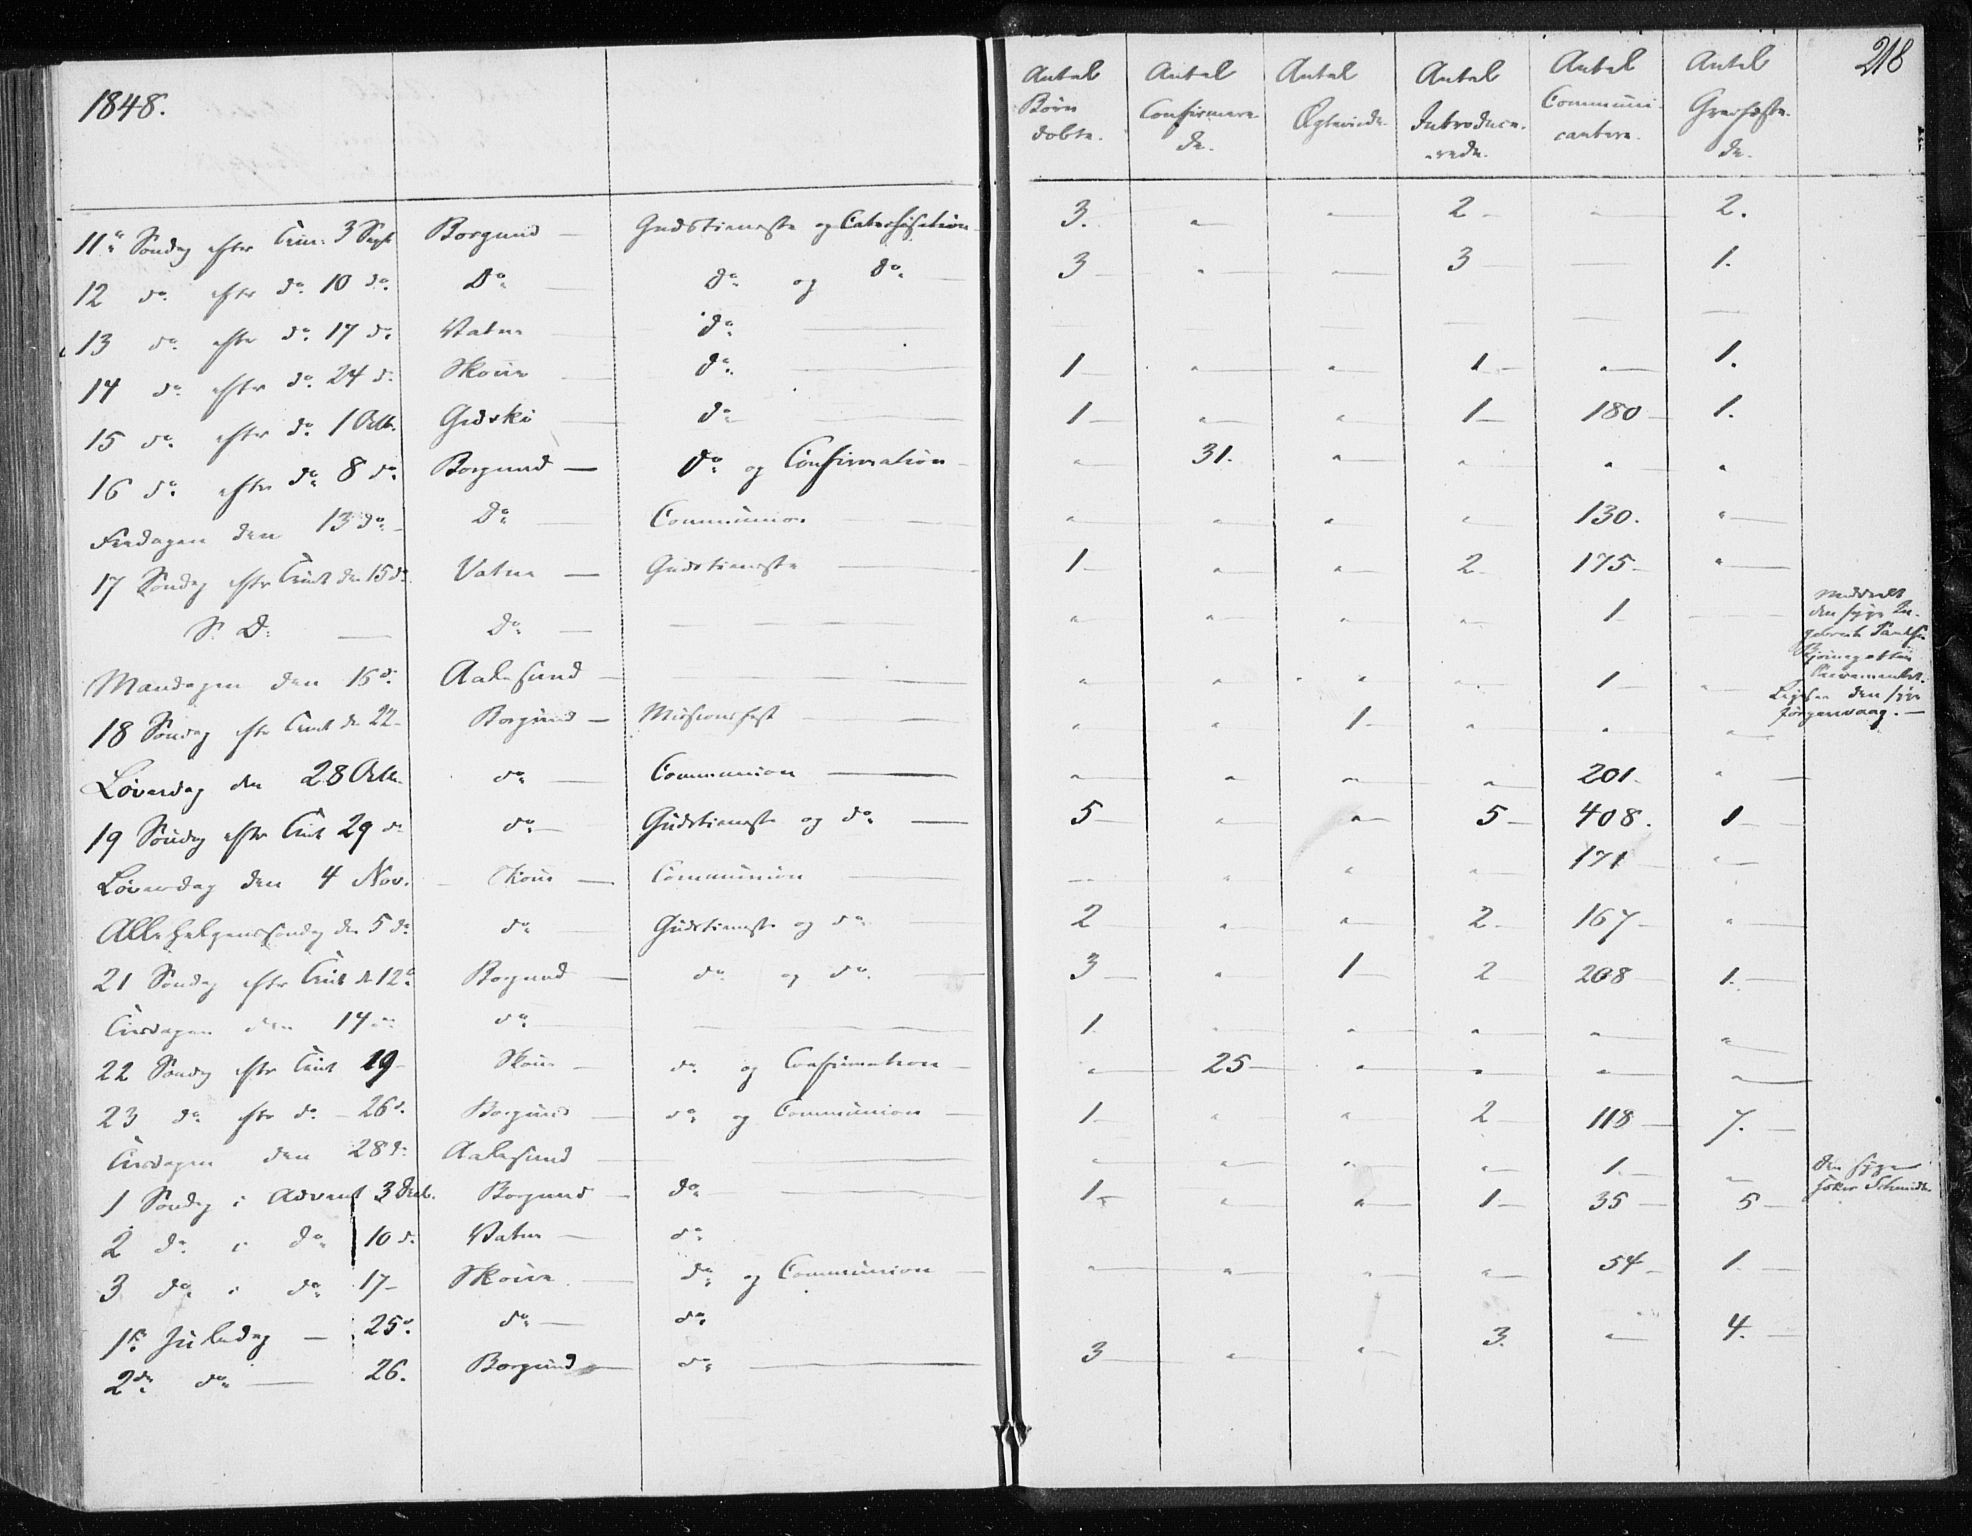 1848.
Antal Børn døbte. Antal Confirmerede. Antal Ægteviede Antal Introducerede. Antal Communicantere. Antal Gravfæstede. 218
11te Søndag efter Trin: 3 Sept Borgund — Gudstieneste og Catechisation 3. " " 2 — " 2.
12 do efter do 10 do Do — do og do — 3 — " " 3 — — 1.
13 do efter do 17 do Vatne — do — — — — — — —
14 do efter do 24 do Skoue — do — 1 — " " 1 — " 1.
15 do efter do 1 Octb. Gidske — do — 1 — " " 1 — 180 — 1.
16 do efter do 8 do Borgund — do og Confirmation — " 31. " " " "
Fredagen den 13 do — Do — Communion — " " " " 130. "
17 Søndag efter Trinit den 15 do Vatne — Gudstieneste — 1 — " " 2 — 175 — "
S. D: — Do — — " " " " 1 — —
Meddeelt den syge
Sacramentet.
Mandagen den 16 d. Aalesund — — " " " " 1 — "
Ligesaa den syge Jørgenvaag. —
18 Søndag efter Trinit den 22 — Borgund — Missionsfest — " " 1 — " " "
Løverdag den 28 Octb. do — Communion — " " " " 201 — "
19 Søndag efter Trinit 29 do do — Gudstieneste og do — 5 — " " 5 — 408. 1 —
Løverdag den 4 Nov. — Skoue — Communion — — " " " 171 — "
Allehelgenssøndag den 5 do do Gudstieneste og do — 2 " " 2 — 167 — "
21 Søndag efter Trinit d 12te Borgund — do og do — 3 — " 1 — 2 208 — 1. —
Tirsdagen den 14 do do — — 1. " " " " "
22 Søndag efter Trinit 19 — Skoue — do og Confirmation — " 25 — " " " "
23 do efter do — 26 d. Borgund — do og Communion — 1 — " " 2 — 118 — 7. —
Tirsdagen den 28 do Aalesund — — " " " " 1. — "
den syge Schmidt
1 Søndag i Advent 3 Decb. Borgund — do — 1 — " " 1 — 35 — 5 —
2 do i do 10 d. Vatne — do
3 do i do 17 — Skoue — do og Communion — " " " " 54 — 1. —
1ste Juledag — 25 d. do — do
2den do — 26. Borgund — do — 3 — " " 3. " 4. —